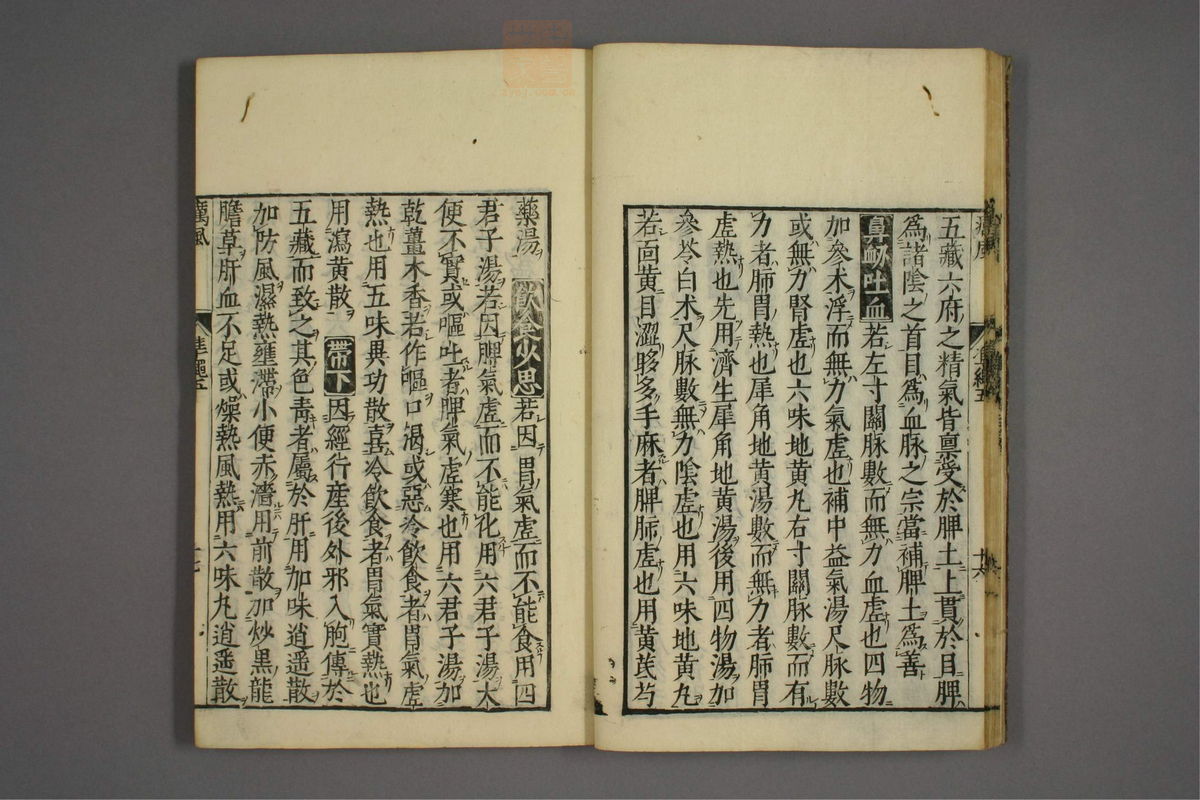 五藏六府之精氣皆禀受於脾土上貫於目脾
爲諸陰之首目爲血脉之宗當補脾土爲善
鼻衂吐血若左寸關脉數而無力血虚也四物
加參术浮而無力氣虚也補中益氣湯尺脉數
或無力腎虚也六味地黄丸右寸關脉數而有
力者肺胃熱也犀角地黄湯數而無力者肺胃
虚熱也先用濟生犀角地黄湯後用四物湯加
參苓白术尺脉數無力陰虚也用六味地黄丸
若面黄目澀眵多手麻者脾肺虚也用黄茋芍
十六
藥湯飲食少思若因胃氣虚而不能食用四
君子湯若因脾氣虚而不能化用六君子湯大
便不實或嘔吐者脾氣虚寒也用六君子湯加
乾薑木香若作嘔口渴或惡冷飲食者胃氣虚
熱也用五味異功散喜冷飲食者胃氣實熱也
用瀉黄散帶下因經行産後外邪入胞傳於
五藏而致之其色青者屬於肝用加味逍遥散
加防風濕熱壅滯小便赤濇用前散加炒黒龍
膽草肝血不足或燥熱風熱用六味丸逍遥散
癘風 準繩五 十七